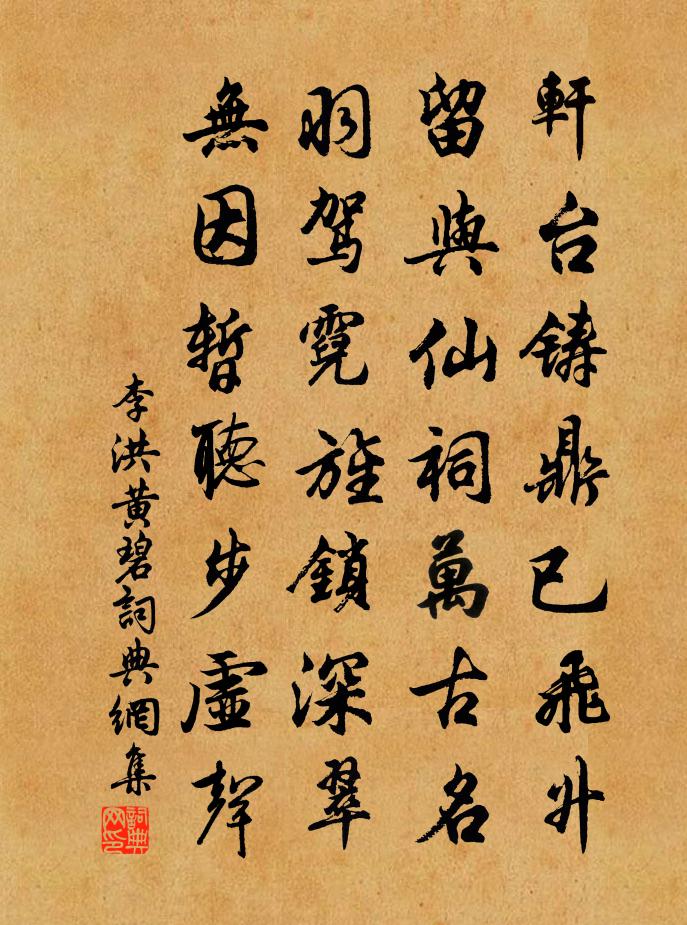 軒台鑄鼎已飛升
留與仙祠萬古名
羽駕霓旌鎖深翠
無因暫聽步虛聲
李洪黃碧詞典網集
詞典网印